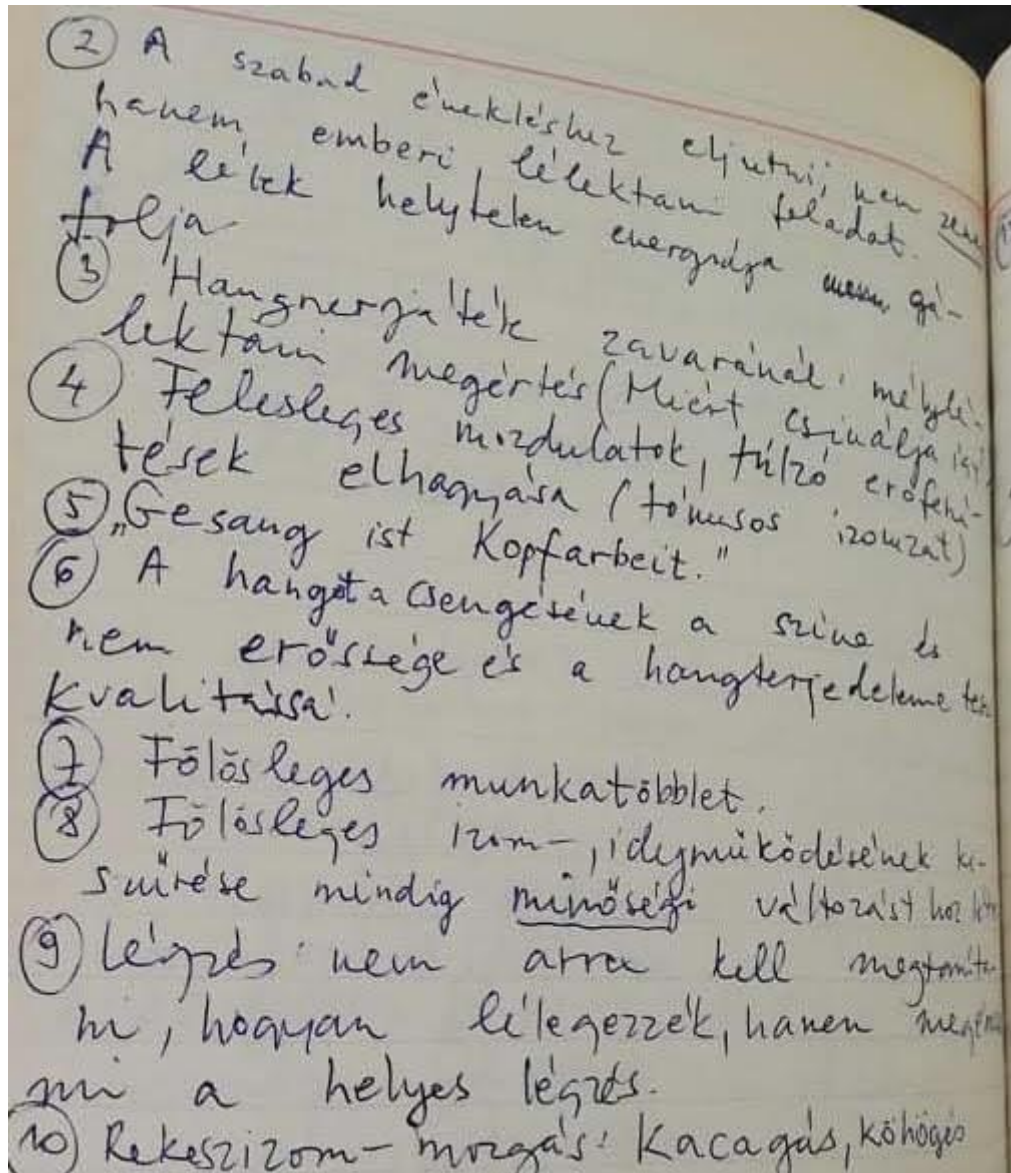 ② A szabad énekléshez eljutni, nem zene
hanem emberi lélektani feladat.
A lélek helytelen energiája gá-
tolja
③ Hangnerjáték zavaránál: mélylé-
lektani megértés (Miért csinálja így
④ Felesleges mozdulatok, túlzó erőfeszí-
tések elhagyása (tónusos izomzat)
⑤ „Gesang ist Kopfarbeit."
⑥ A hangot a csengésének a színe és
nem erőssége és a hangterjedeleme teszi
kvalitássá.
⑦ Fölösleges munkatöbblet.
⑧ Fölösleges izom-, idegműködésének ki-
szűrése mindig minőségi változást hoz létre
⑨ légzés: nem arra kell megtaníta-
ni, hogyan lélegezzék, hanem
mi a helyes légzés.
⑩ Rekeszizom-mozgás: Kacagás, köhögés